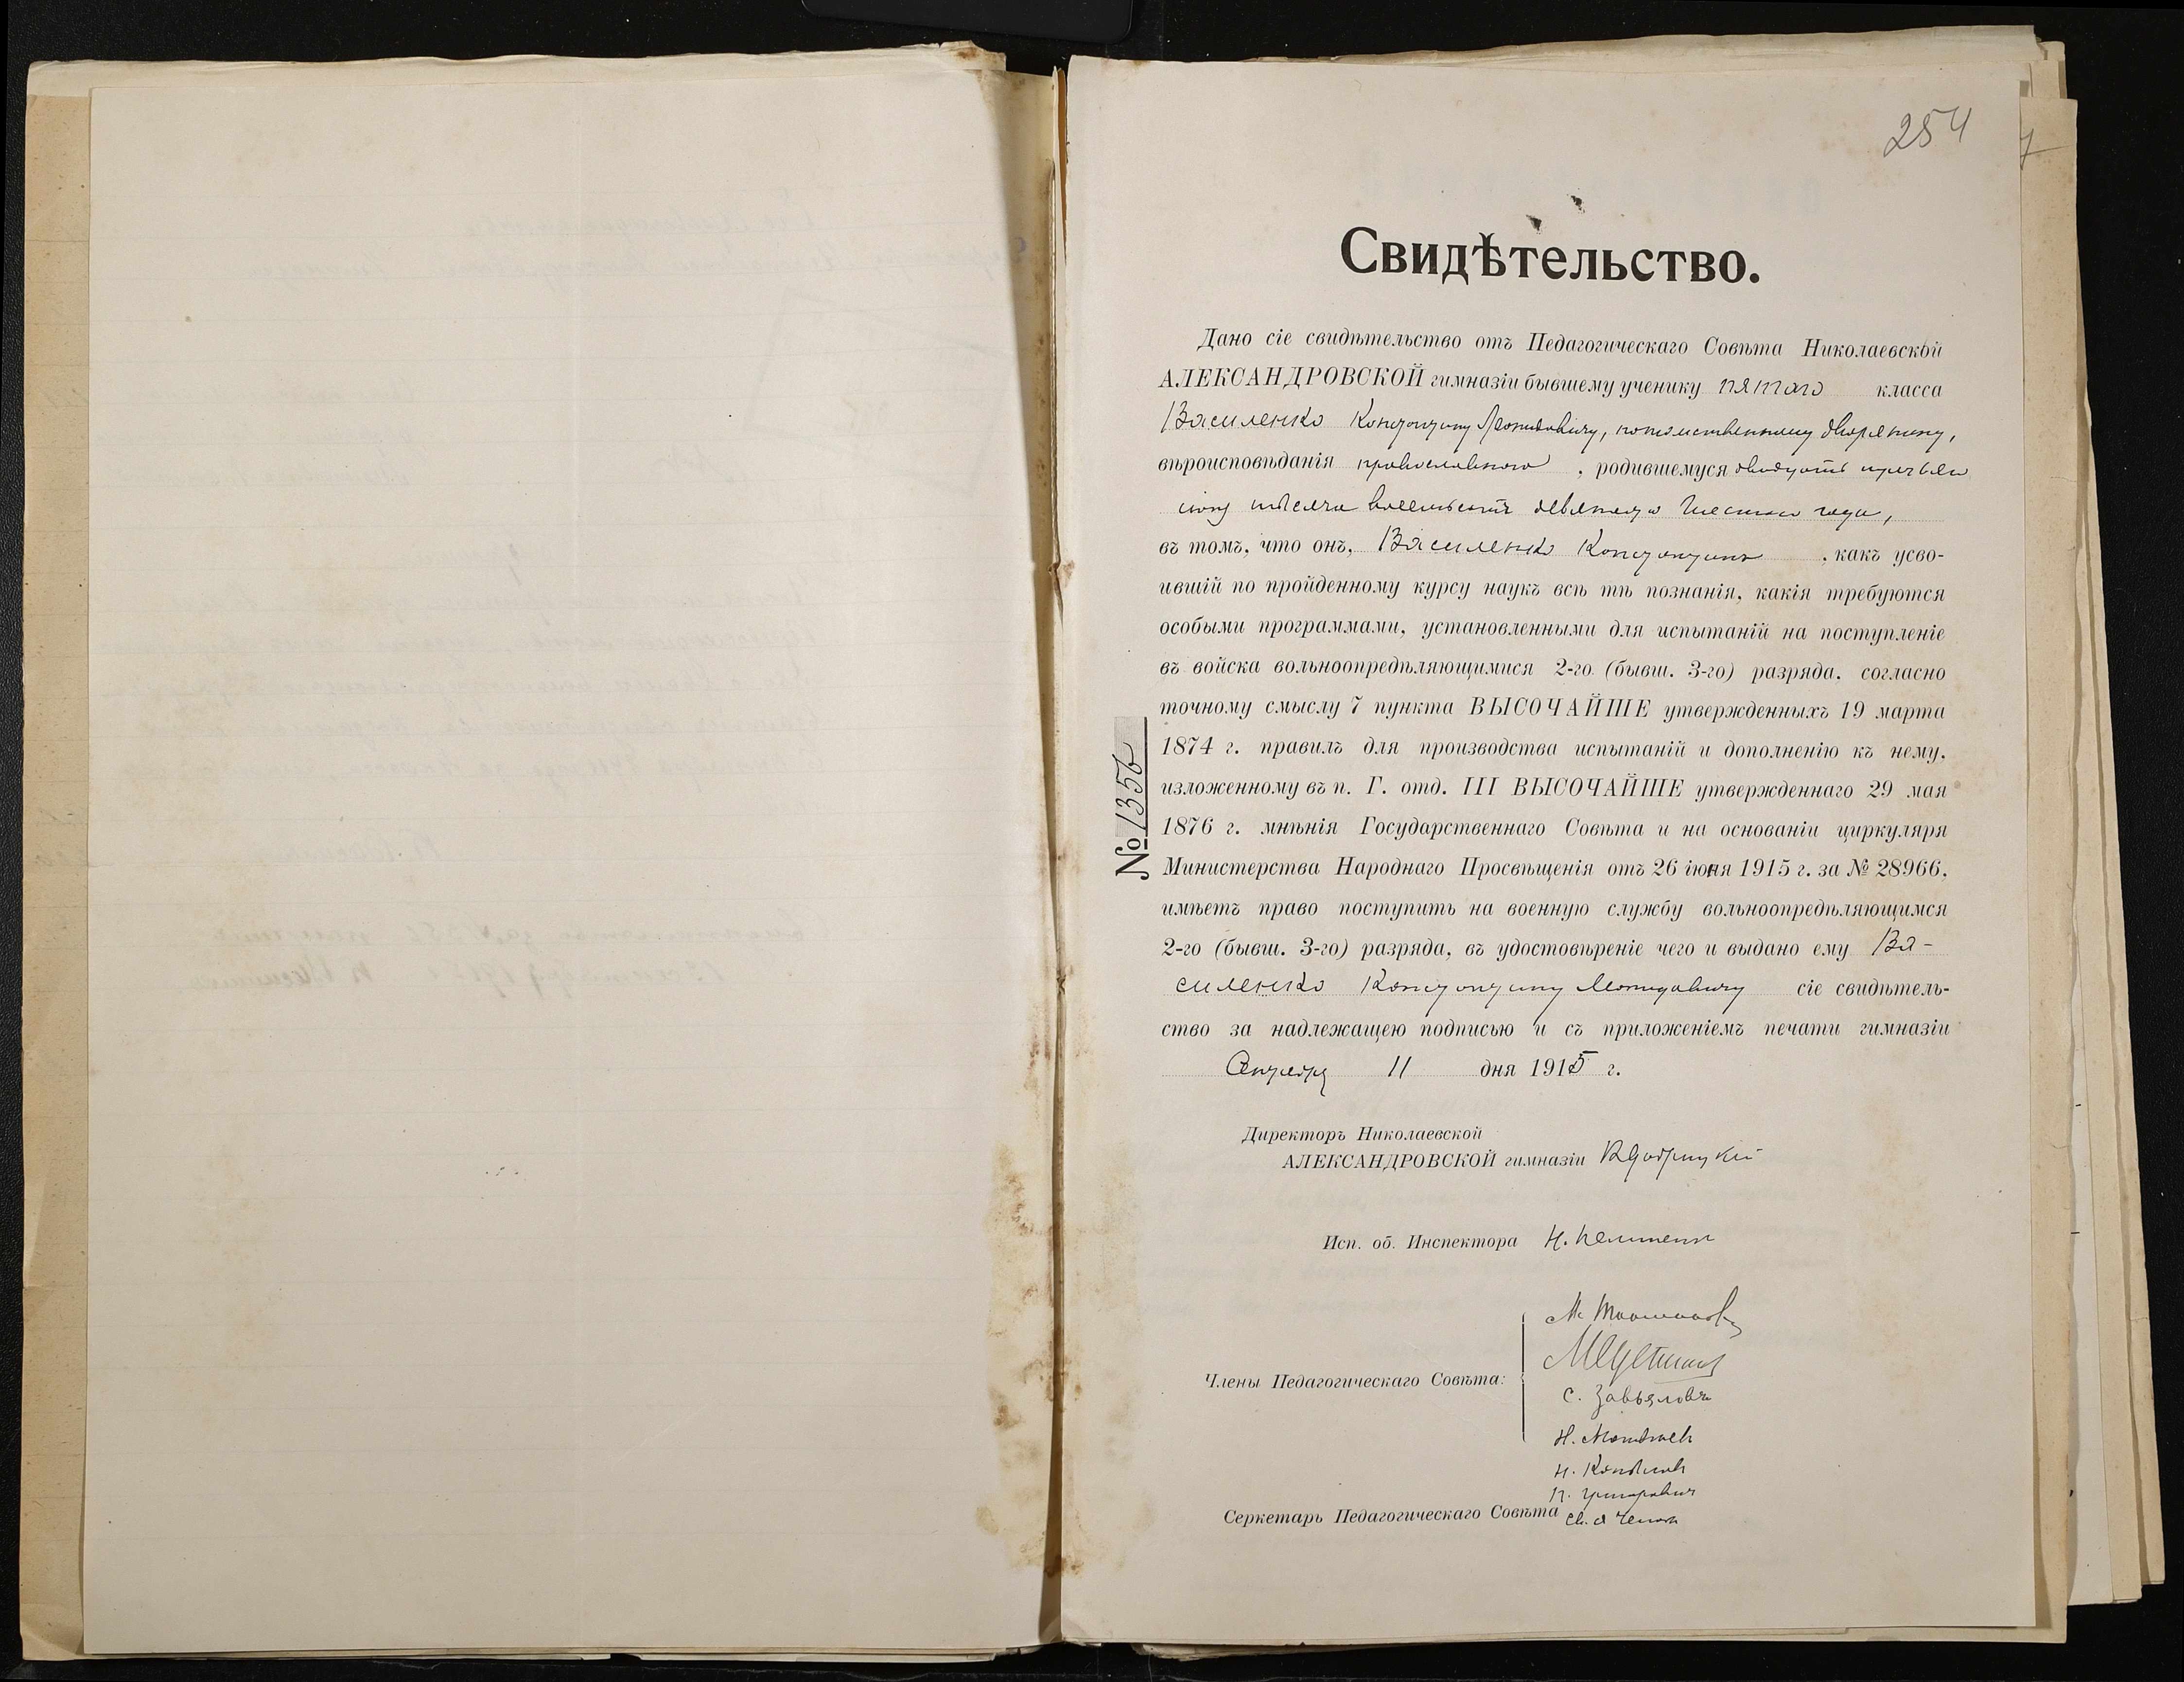 254
Свидѣтельство.
Дано сіе свидѣтельство отъ Педагогическаго Совѣта Николаевской
АЛЕКСАНДРОВСКОЙ гимназіи бывшему ученику пятаго класса
Василенко Константину Леонидовичу, потомственному дворянину,
вѣроисповѣданія православнаго, родившемуся двадцать третьяго
тысяча восемьсотъ девяносто шестого года,
въ томъ, что онъ, Василенко Константинъ, какъ усво-
ившій по пройденному курсу наукъ всѣ тѣ познанія, какія требуются
особыми программами, установленными для испытаній на поступленіе
въ войска вольноопредѣляющимися 2-го (бывш. 3-го) разряда, согласно
точному смыслу 7 пункта ВЫСОЧАЙШЕ утвержденныхъ 19 марта
1874 г. правилъ для производства испытаній и дополненію къ нему,
изложенному въ п. Г. отд. III ВЫСОЧАЙШЕ утвержденнаго 29 мая
1876 г. мнѣнія Государственнаго Совѣта и на основаніи циркуляра
Министерства Народнаго Просвѣщенія отъ 26 іюня 1915 г. за № 28966,
имѣетъ право поступить на военную службу вольноопредѣляющимся
2-го (бывш. 3-го) разряда, въ удостовѣреніе чего и выдано ему Ва-
силенко Константину Леонидовичу сіе свидѣтель-
ство за надлежащею подписью и съ приложеніемъ печати гимназіи
Сентября 11 дня 1915 г.
№ 1356
Директоръ Николаевской
АЛЕКСАНДРОВСКОЙ гимназіи
Исп. об. Инспектора Н.
Члены Педагогическаго Совѣта:
М.
С. Завьяловъ
Н.
Н.
П. Григоровичъ
Серкетарь Педагогическаго Совѣта